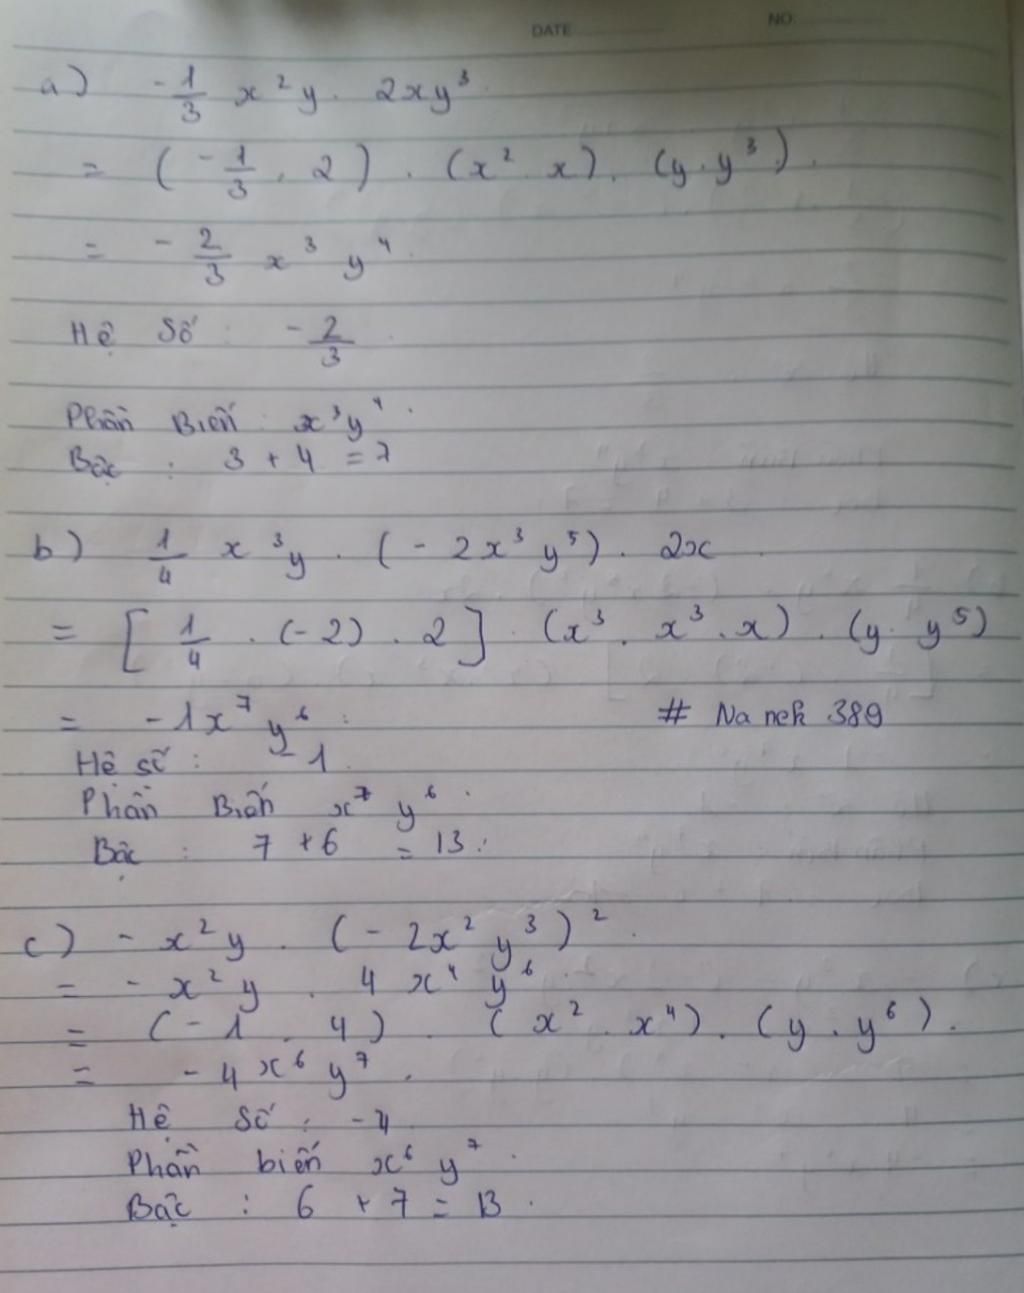 DATE NO:
a) -1/3 x²y . 2xy³
= (-1/3 . 2) . (x² . x) . (y . y³)
= -2/3 x³ y⁴
Hệ Số : -2/3
Phần Biến : x³y⁴
Bậc : 3 + 4 = 7
b) 1/4 x³y . (-2x³ y⁵) . 2x
= [1/4 . (-2) . 2] . (x³ . x³ . x) . (y . y⁵)
= -1x⁷ y⁶
# Na nek 389
Hệ số : -1
Phần Biến x⁷ y⁶
Bậc : 7 + 6 = 13
c) -x²y . (-2x² y³)²
= -x²y . 4x⁴ y⁶
= (-1 . 4) . (x² . x⁴) . (y . y⁶).
= -4x⁶ y⁷
Hệ Số : -4
Phần biến x⁶ y⁷
Bậc : 6 + 7 = 13